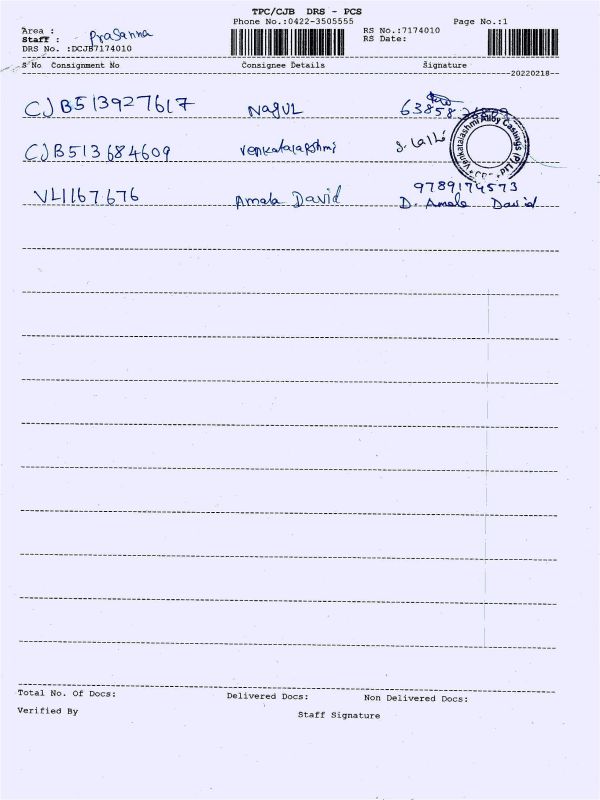 TPC/CJB DRS - PCS
Phone No.:0422-3505555 Page No.:1
Area :
Staff : Prasanna
RS No.:7174010
RS Date:
DRS No. :DCJB7174010
S'No Consignment No Consignee Details Signature
20220218
CJB513927617 Nagul 63858
CJB513684609 Venkatalapshmi
Venkatalashmi Alloy Casings (P) Ltd
VL1167676 Amala David 9789174573
D. Amala David
Total No. Of Docs: Delivered Docs: Non Delivered Docs:
Verified By Staff Signature